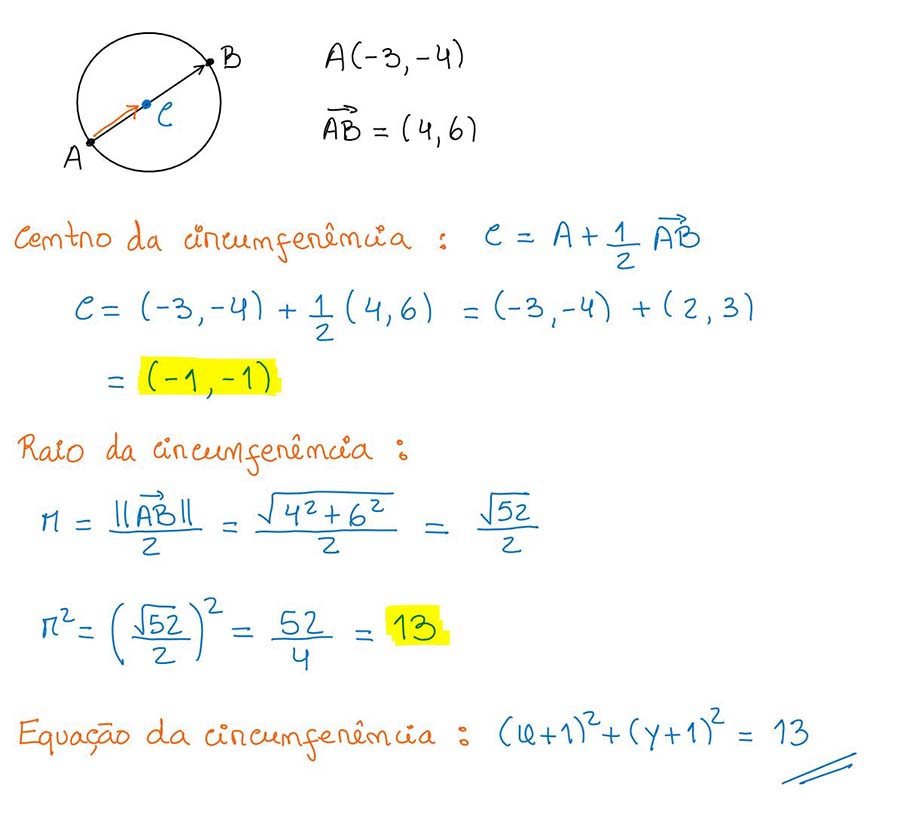 B
A(-3,-4)
C
A
AB⃗ = (4,6)
Centro da circunferência : C = A + 1/2 AB⃗
C = (-3,-4) + 1/2 (4,6) = (-3,-4) + (2,3)
= (-1,-1)
Raio da circunferência :
r = ||AB⃗||/2 = √(4²+6²)/2 = √52/2
r² = (√52/2)² = 52/4 = 13
Equação da circunferência : (x+1)²+(y+1)² = 13